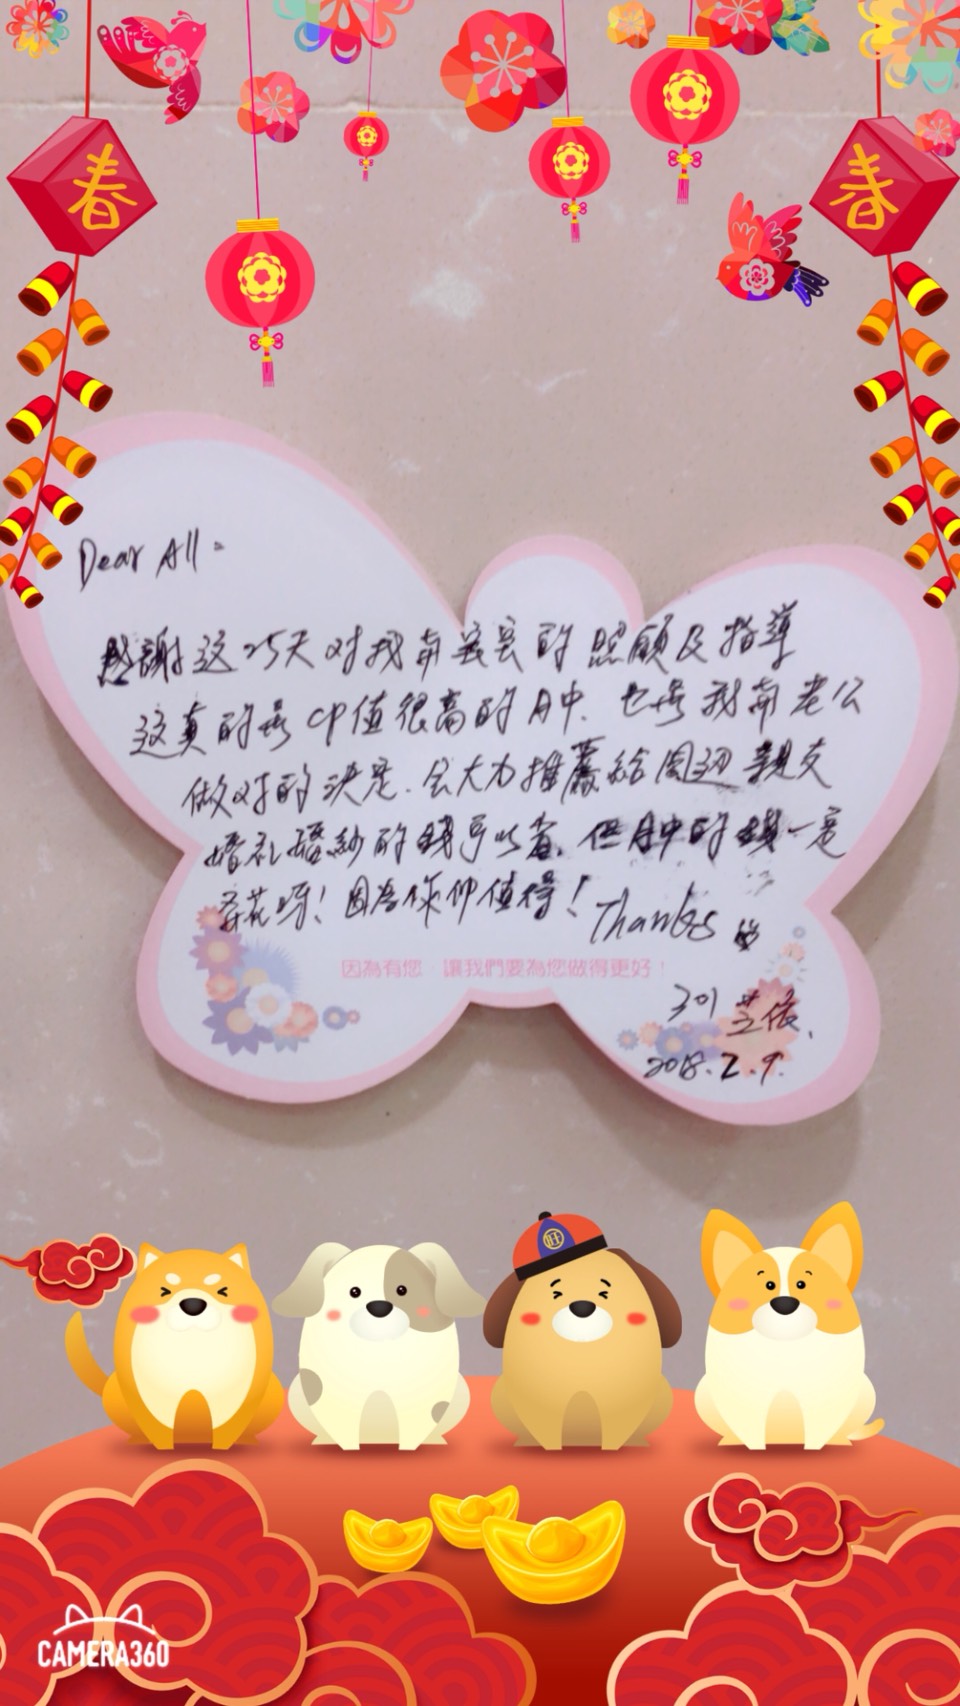 春
春
Dear All:
感謝這25天對我和寶寶的照顧及指導
這真的是CP值很高的月中.也是我和老公
做對的決定.会大力推薦給周邊親友
婚礼婚紗的錢可以省,但月中的錢一定
要花呀!因為你们值得!Thanks
因為有您 讓我們要為您做得更好!
301 芝依
2018.2.9.
旺
CAMERA360